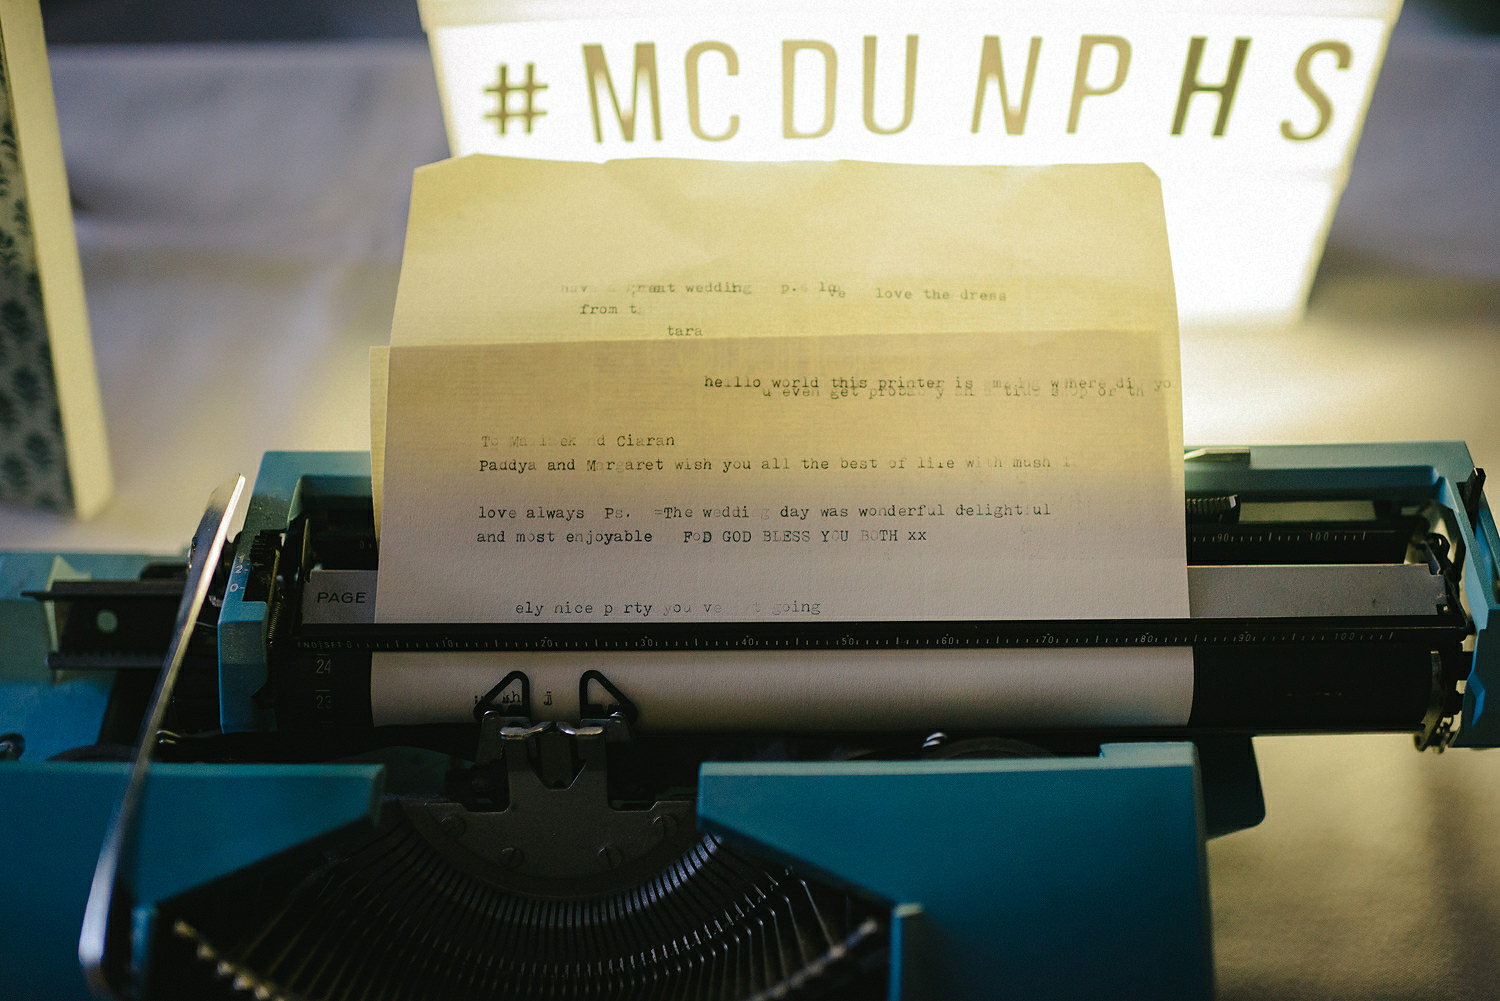 #MCDUNPHS
have a great wedding p.s love love the dress
from
tara
helllo world this printer is where di yo
u even get or th
To nd Ciaran
Paddya and Margaret wish you all the best of life with mush
love always Ps. =The wedding day was wonderful delightful
and most enjoyable FoD GOD BLESS YOU BOTH xx
ely nice p rty you ve going
PAGE
END|SET 0 10 20 30 40 50 60 70 80 90 100
24
23
j
90 100
2
0